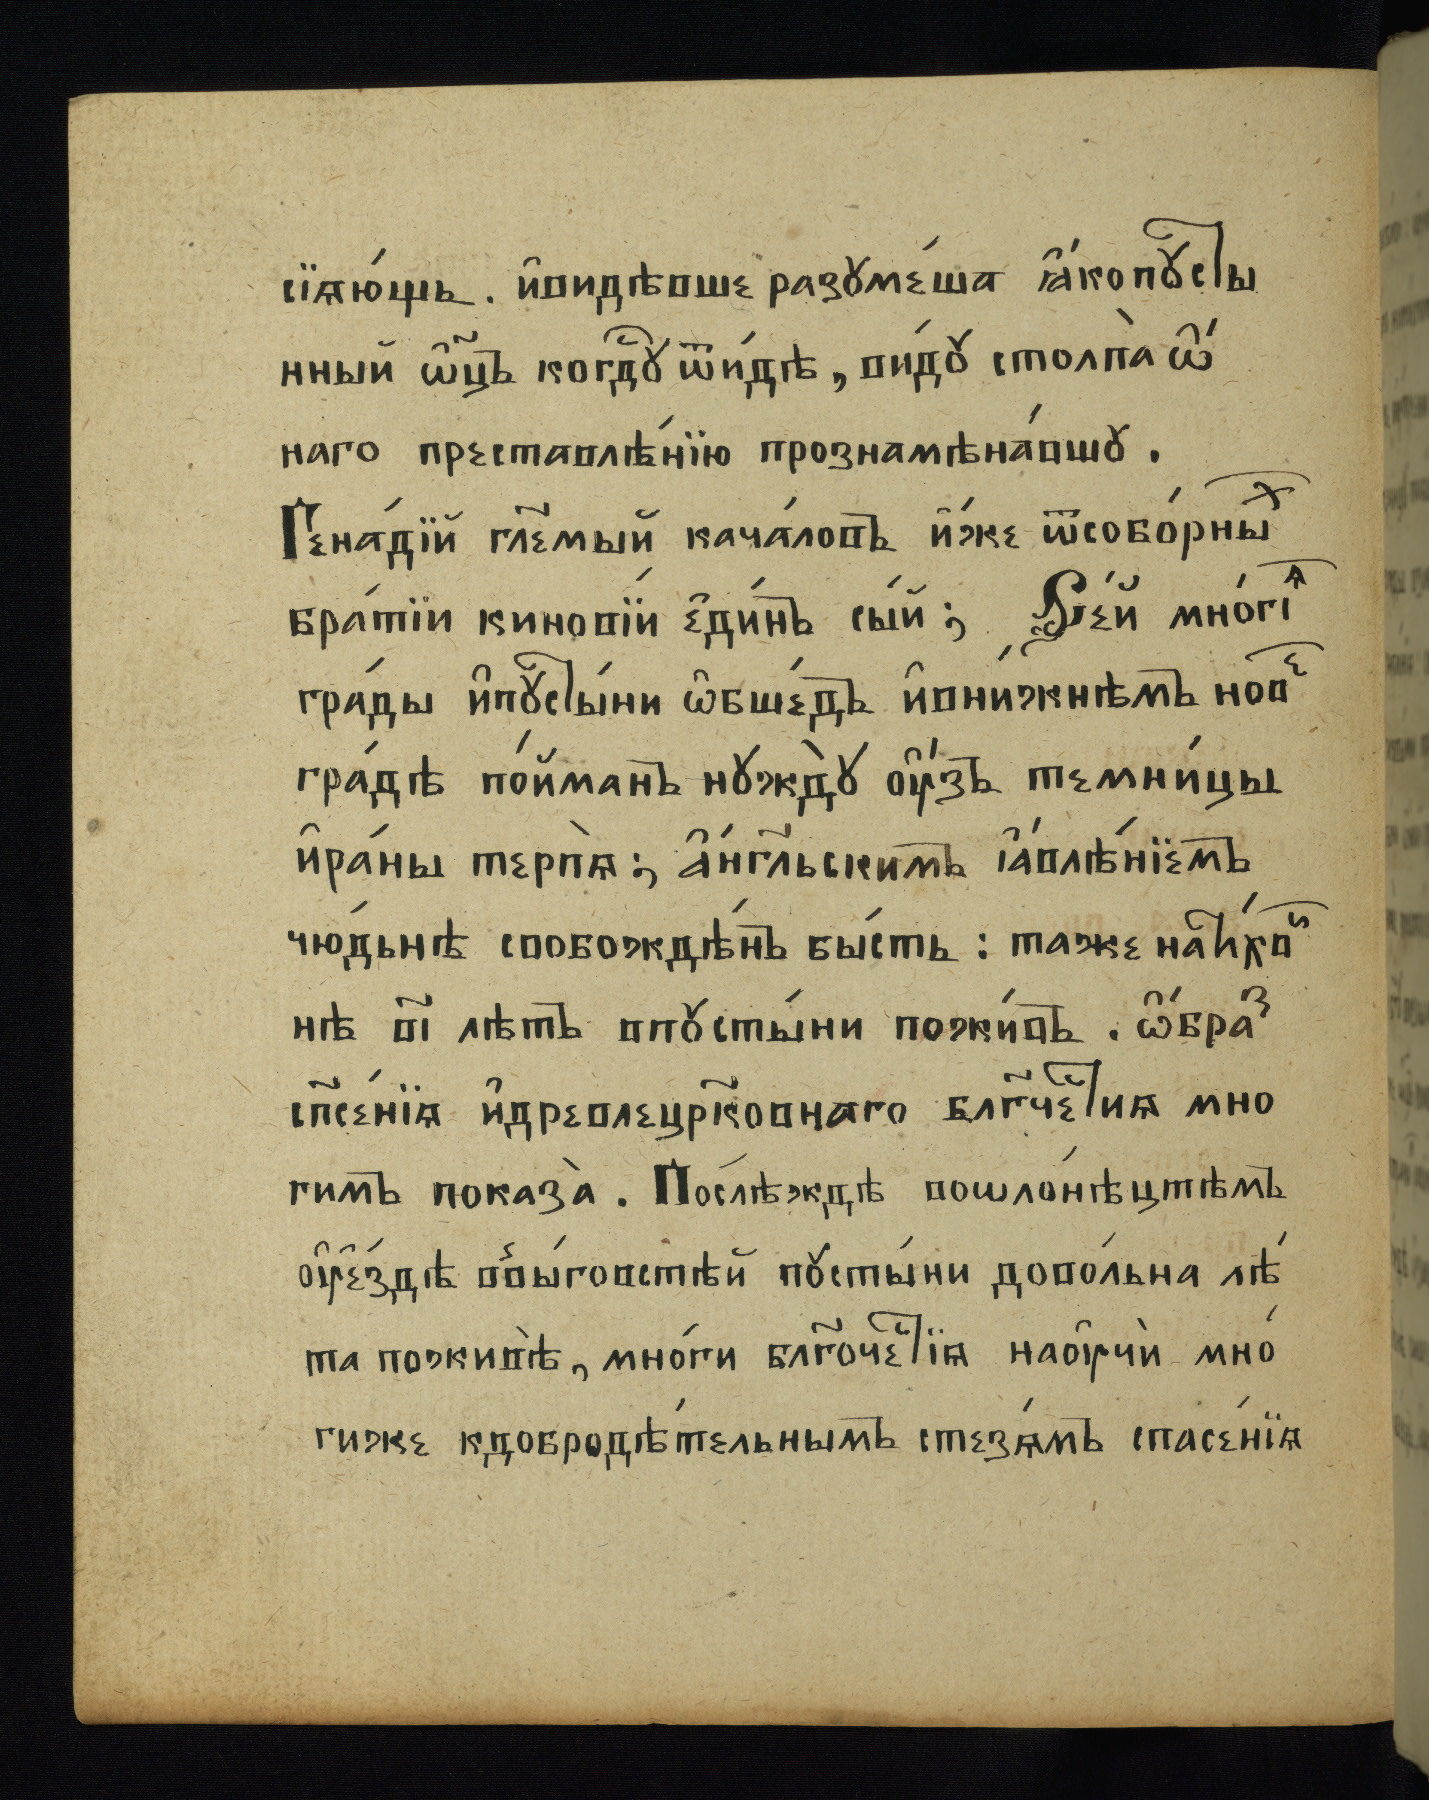 сїѧю́щь. и҆видѣвше разꙋме́ша ꙗ҆́копꙋсты
нный ѿц҃ъ когд҃ꙋ ѿи́дѣ, ви́дꙋ столпа̀ ѡ҆́
наго преставлѣ́нїю прознамѣна́вшꙋ.
Гена́дїй гл҃емый кача́ловъ и҆́же ѿсобо́рныⷯ
бра́тїи кинові́и є҆ди́нъ сы́й; Се́й мно́гїѧ
гра́ды и҆пꙋсты́ни ѡ҆бше́дъ и҆вни́жнѣмъ новⷷ
гра́дѣ по́йманъ нꙋ́ждꙋ ᲂу҆́зъ темни́цы
и҆ра́ны терпѧ̀; а҆́нгл҃ьскимъ ꙗ҆влѣ́нїемъ
чю́дьнѣ свобождѣ́нъ бы́сть: таже на
нѣ в҃і лѣтъ впꙋсты́ни пожи́въ. ѡ҆́браⷥ
сп҃се́нїѧ и҆древлецрк҃овнаго бл҃гчестиѧ мно
гимъ показа̀. По́слѣждѣ вошло́нѣцтѣмъ
ᲂу҆є҆́здѣ ввы́говстѣй пꙋсты́ни дово́льна лѣ́
та поживѣ̀, мно́ги бл҃гочестїѧ наᲂу҆чѝ мно́
гиже кдобродѣ́тельнымъ стезѧ́мъ спасе́нїѧ